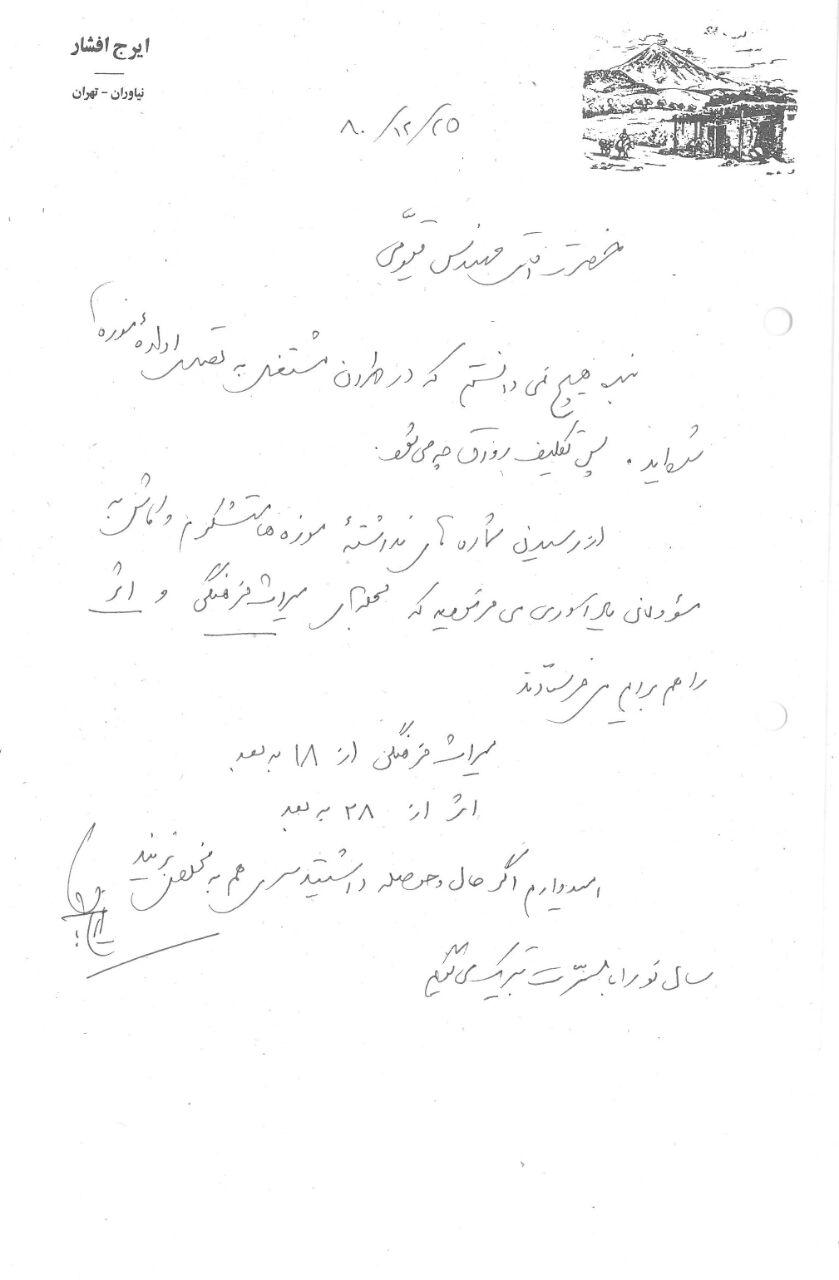 ایرج افشار
نیاوران - تهران
۸۰/۱۲/۲۵
حضرت آقای مهندس قیومی
بنده هیچ نمی دانستم که در همدان مشتغل به تحصیل
شده‌اید. پس تکلیف روزتان چه می‌شود.
از رسیدن شماره های نداشتهٔ موزه ها متشکرم و کاش به
مسؤولانی یادآوری می فرمودید که مجله‌های میراث فرهنگی و اثر
را هم برایم می فرستادند
میراث فرهنگی از ۱۸ به بعد
اثر از ۲۸ به بعد
امیدوارم اگر حال و حوصله داشتید سری هم به مخلص بزنید
سال نو را با مسرّت تبریک می گویم